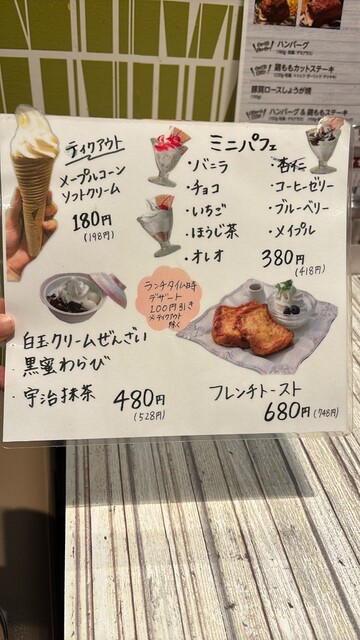 ハンバーグ
鶏ももカットステーキ
豚肩ロースしょうが焼
ハンバーグ & 鶏ももステーキ
テイクアウト
メープルコーン
ソフトクリーム
180円
(198円)
ミニパフェ
・バニラ
・チョコ
・いちご
・ほうじ茶
・オレオ
・杏仁
・コーヒーゼリー
・ブルーベリー
・メイプル
380円
(418円)
ランチタイム時
デザート
100円引き
※テイクアウト
除く
・白玉クリームぜんざい
・黒蜜わらび
・宇治抹茶 480円
(528円)
フレンチトースト
680円(748円)